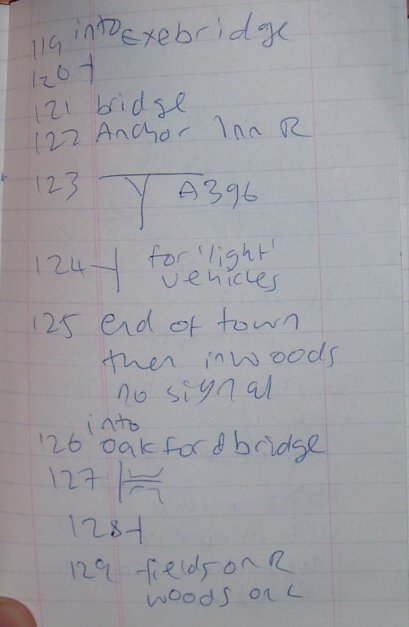 119 into Exebridge
120
121 bridge
122 Anchor Inn R
123 A396
124 for 'light'
vehicles
125 end of town
then in woods
no signal
into
126 Oakford bridge
127
128
129 fields on R
woods on L